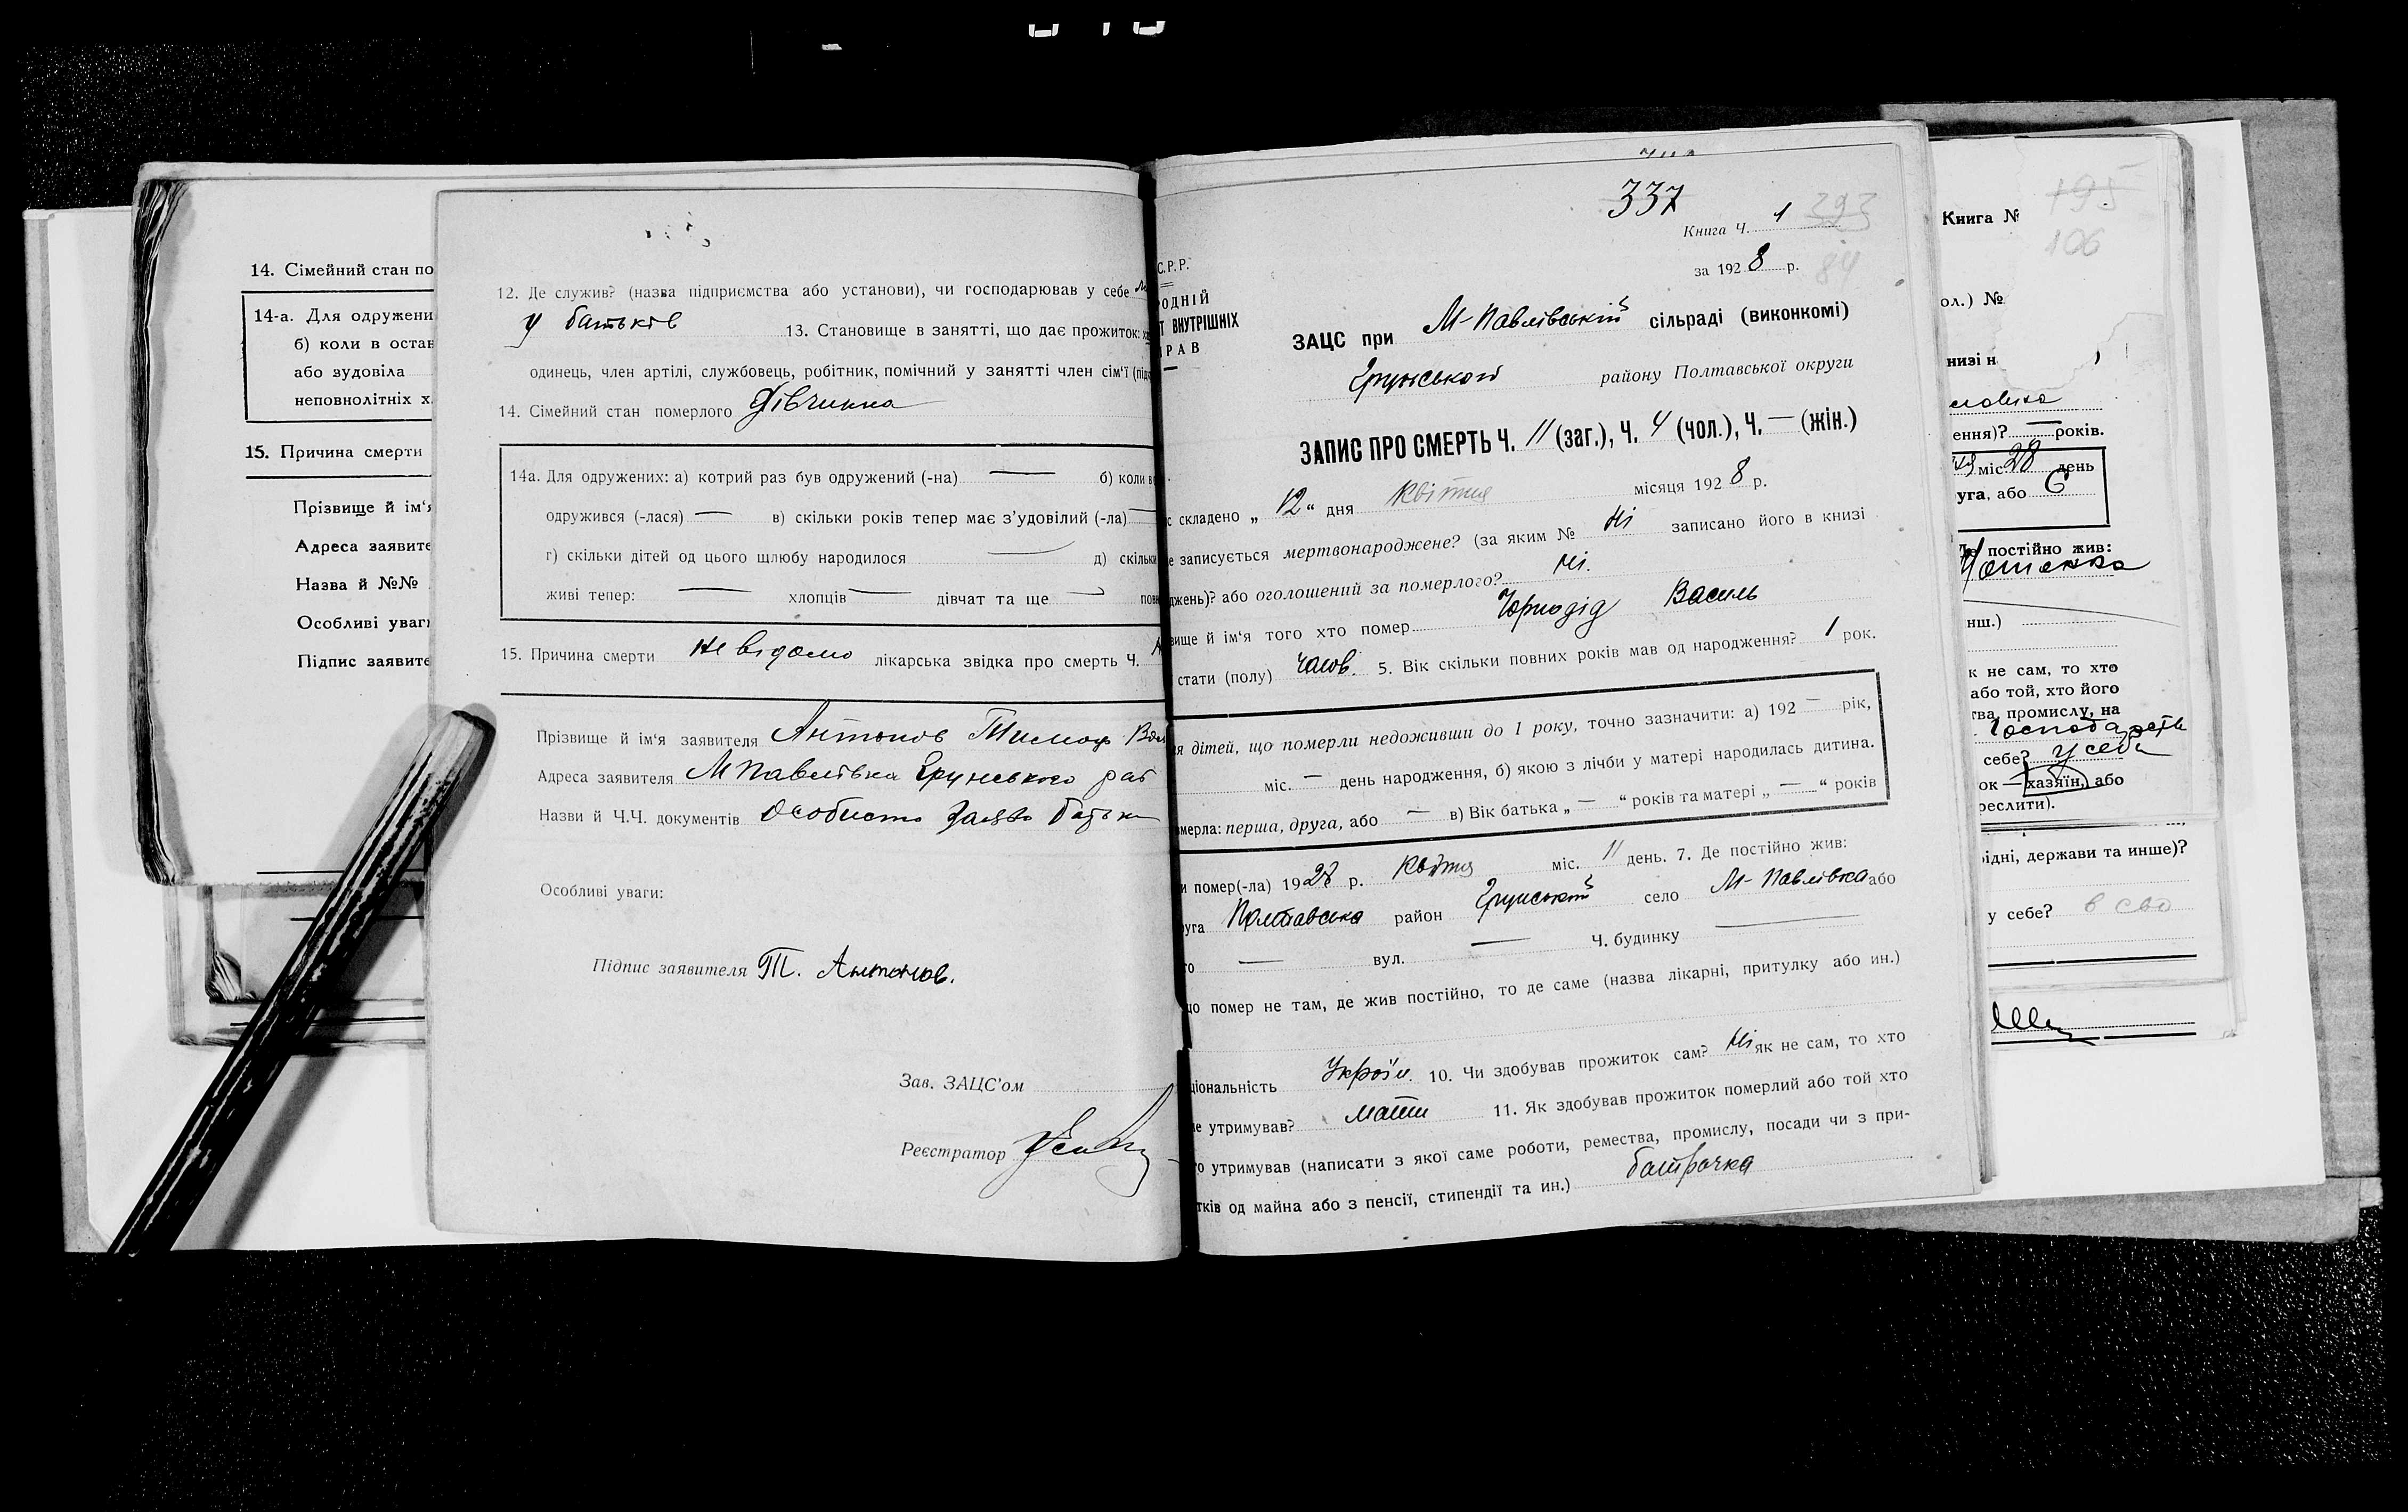 14. Сімейний стан по
14-а. Для одружени
б) коли в остан
або зудовіла
неповнолітніх х
15. Причина смерти
Прізвище й ім'я
Адреса заявите
Назва й №№
Особливі уваг
Підпис заявите
12. Де служив? (назва підприємства або установи), чи господарював у себе
у батьків 13. Становище в занятті, що дає прожиток:
одинець, член артілі, службовець, робітник, помічний у занятті член сім'ї (під
14. Сімейний стан померлого Дівчинка
14а. Для одружених: а) котрий раз був одружений (-на) — б) коли в
одружився (-лася) — в) скільки років тепер має з'удовілий (-ла) —
г) скільки дітей од цього шлюбу народилося — д) скільки
живі тепер: — хлопців — дівчат та ще — повн
15. Причина смерти не відомо лікарська звідка про смерть Ч.
Прізвище й ім'я заявителя Антонов Тимох
Адреса заявителя М Павлівка Грунського рай
Назви й Ч.Ч. документів Особиста заява батьк
Особливі уваги:
Підпис заявителя Т. Антонов.
Зав. ЗАЦС'ом
Реєстратор
337
Книга Ч. 1 393
за 1928 р. 84
С.Р.Р.
РОДНІЙ
Т ВНУТРІШНІХ
РАВ
ЗАЦС при М-Павлівській сільраді (виконкомі)
Грунського району Полтавської округи
ЗАПИС ПРО СМЕРТЬ Ч. 11 (заг.), Ч. 4 (чол.), Ч. — (жін.)
с складено „ 12 “ дня квітня місяця 1928 р.
е записується мертвонароджене? (за яким № ні записано його в книзі
джень)? або оголошений за померлого? ні.
вище й ім'я того хто помер Чорнодід Василь
стати (полу) чолов. 5. Вік скільки повних років мав од народження? 1 рок.
я дітей, що померли недоживши до 1 року, точно зазначити: а) 192 — рік,
міс. — день народження, б) якою з лічби у матері народилась дитина.
омерла: перша, друга, або — в) Вік батька „ — “ років та матері „ — “ років
и помер(-ла) 1928 р. квітня міс. 11 день. 7. Де постійно жив:
уга Полтавська район Грунський село М-Павлівка або
то — вул. — Ч. будинку —
що помер не там, де жив постійно, то де саме (назва лікарні, притулку або ин.)
ціональність Україн. 10. Чи здобував прожиток сам? ні як не сам, то хто
не утримував? мати 11. Як здобував прожиток померлий або той хто
го утримував (написати з якої саме роботи, ремества, промислу, посади чи з при-
тків од майна або з пенсії, стипендії та ин.) батрачка
Книга № 195
106
ол.) №
низі н
ення)? — років.
міс 28 день
уга, або 6
Де постійно жив:
нш.)
к не сам, то хто
або той, хто його
тва, промислу, на
себе? у себе
ок — хазяїн, або
реслити).
ідні, держави та инше)?
у себе? в сво